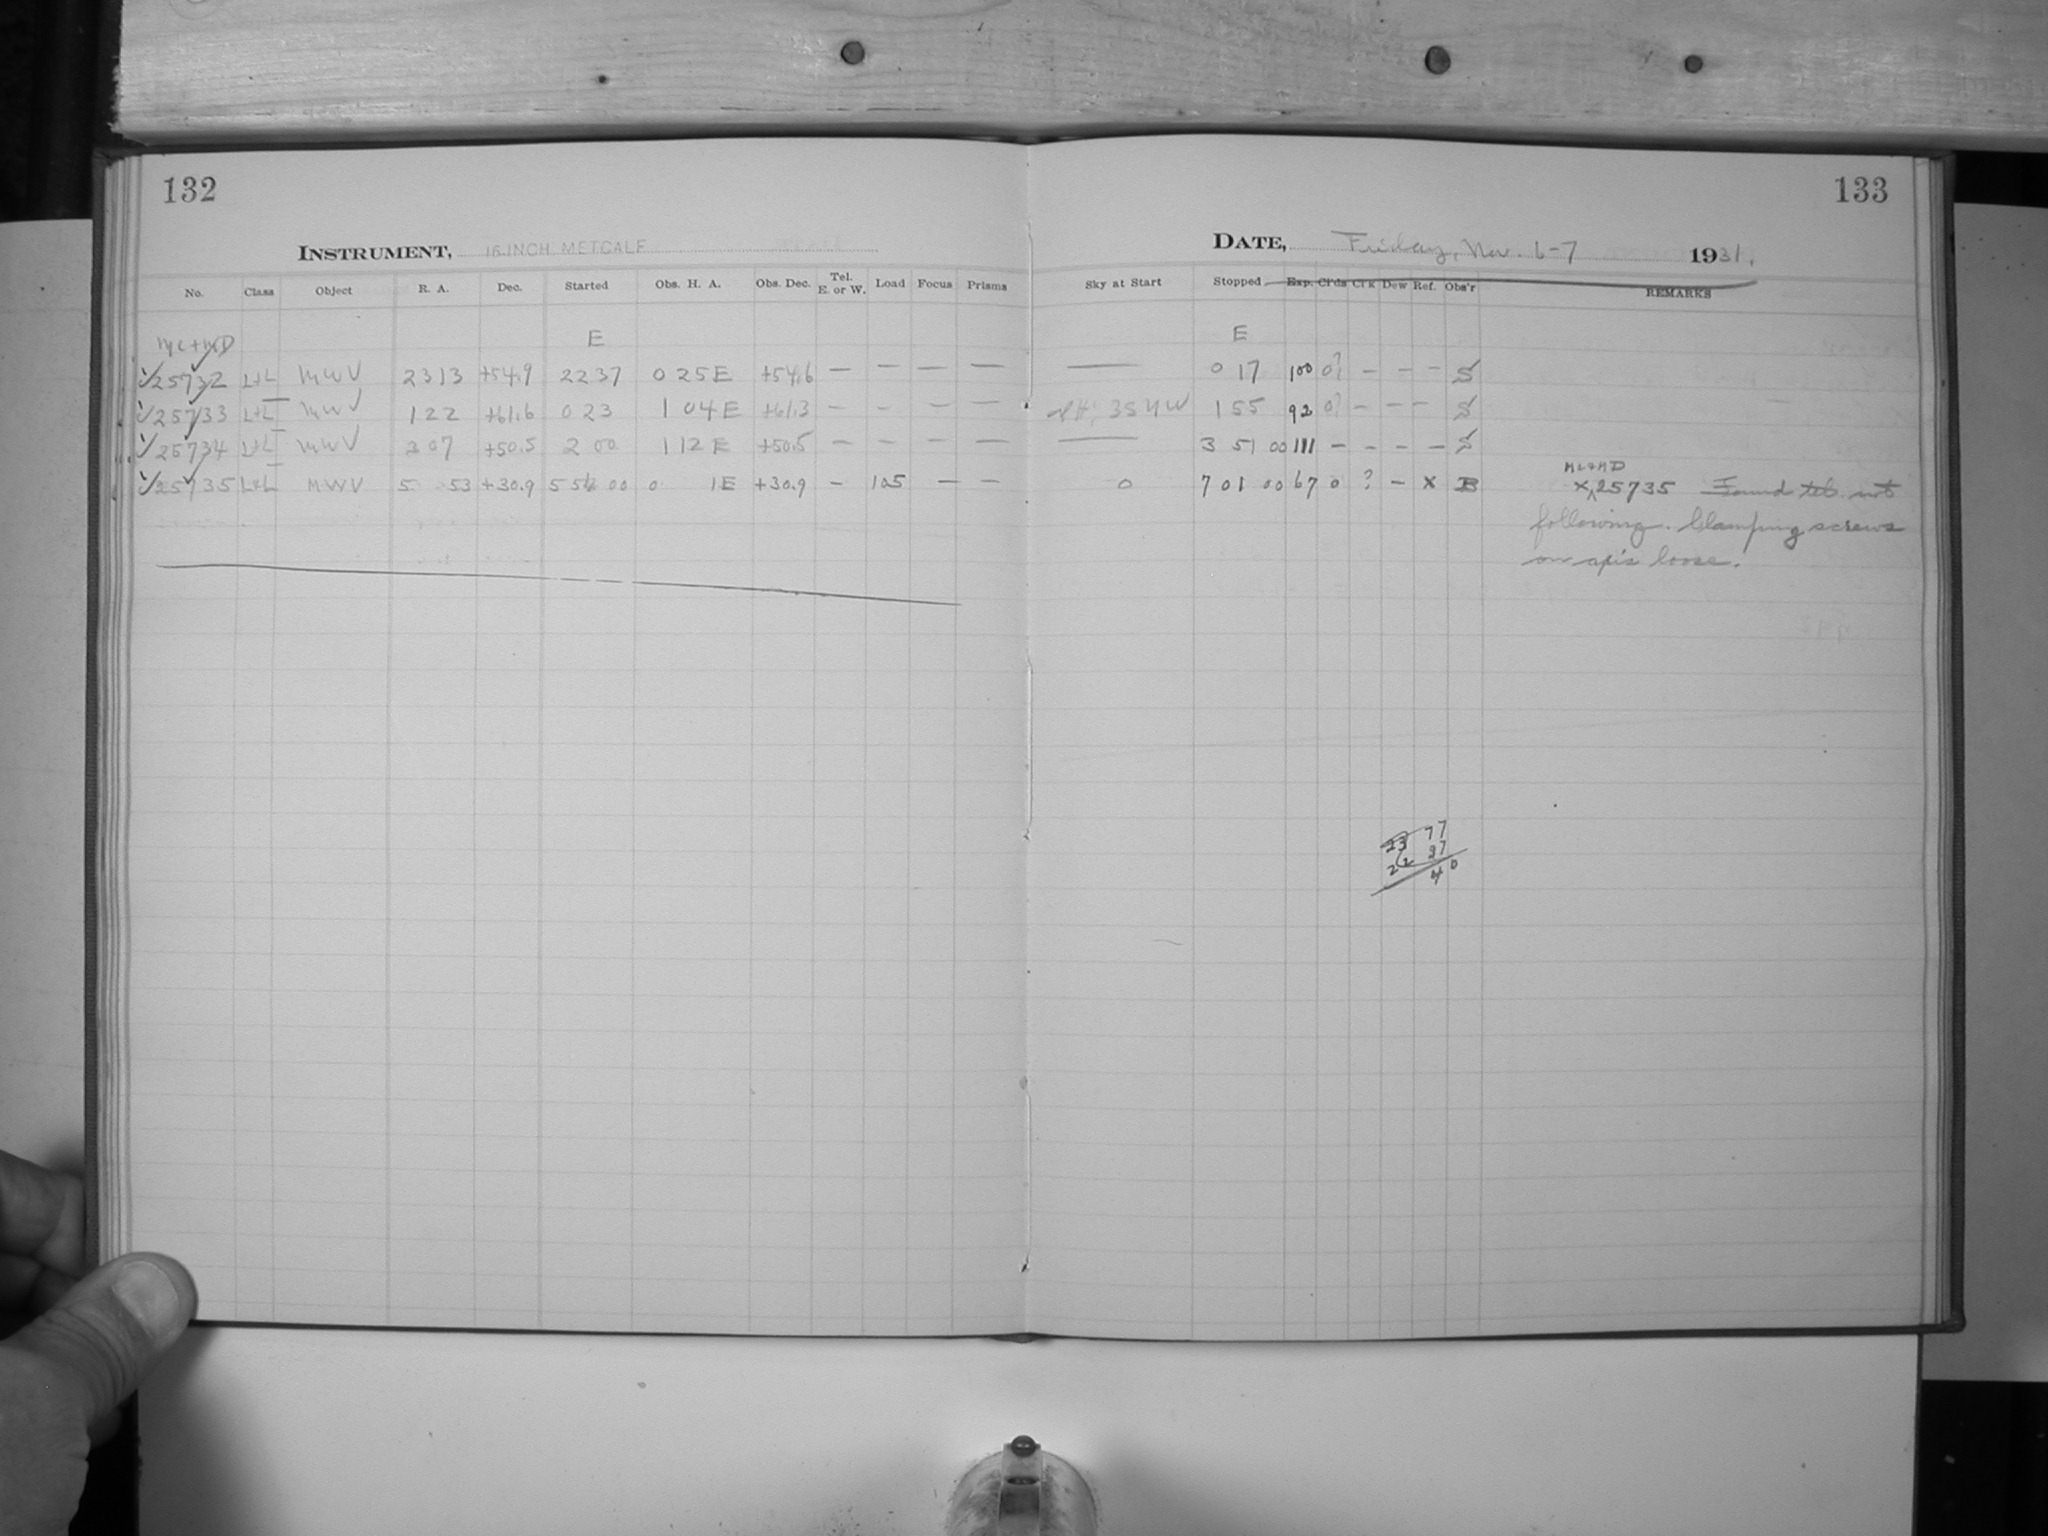 132
133
INSTRUMENT, 16-INCH METCALF
DATE, Friday, Nov. 6-7 1931.
No. Class Object R. A. Dec. Started Obs. H. A. Obs. Dec. Tel. E. or W. Load Focus Prisms Sky at Start Stopped Exp. Cl'ds Cl'k Dew Ref. Obs'r REMARKS
MC+MD E E
25732 L+L MWV 23 13 +54.9 22 37 0 25 E +54.6 — — — — — 0 17 100 0? — — — S
25733 L+L MWV 1 22 +61.6 0 23 1 04 E +61.3 — — — — 354W 1 55 92 0? — — — S
25734 L+L MWV 3 07 +50.5 2 00 1 12 E +50.5 — — — — — 3 51 00 111 — — — — S
25735 L+L MWV 5 53 +30.9 5 54 00 0 1 E +30.9 — 105 — — 0 7 01 00 67 0 ? — x B
MC+MD
x 25735 Found tel. not
following. Clamping screws
on axis loose.
23 77
22 37
40